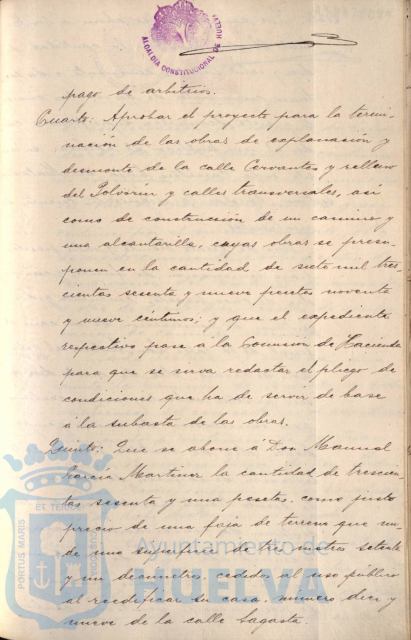 ALCALDIA CONSTITUCIONAL DE HUELVA
pago de arbitrios.
Cuarto: Aprobar el proyecto para la termi-
nación de las obras de explanación y
desmonte de la calle Cervantes y relleno
del Polvorin y calles transversales, así
como de construcción de un camino y
una alcantarilla, cuyas obras se presu-
ponen en la cantidad de siete mil tres-
cientas sesenta y nueve pesetas noventa
y nueve céntimos; y que el expediente
respectivo pase á la Comisión de Hacienda
para que se sirva redactar el pliego de
condiciones que ha de servir de base
á la subasta de las obras.
Quinto: Que se abone á Don Manuel
Garcia Martinez la cantidad de trescien-
tas sesenta y una pesetas, como justo
precio de una faja de terreno que mi-
de una superficie de tres metros setenta
y un decimetros, cedidos al uso público
al reedificar su casa, número diez y
nueve de la calle Sagasta.
PORTUS MARIS ET TERRAE CUSTODIA
Ayuntamiento de
HUELVA